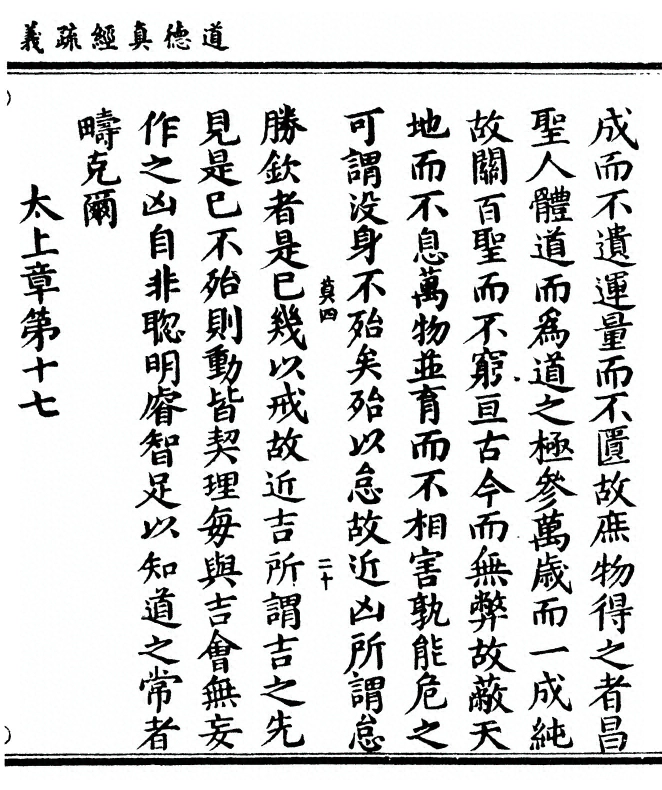 道德真經疏義
成而不遺運量而不匱故庶物得之者昌
聖人體道而爲道之極參萬歲而一成純
故關百聖而不窮亘古今而無弊故蔽天
地而不息萬物並育而不相害孰能危之
可謂没身不殆矣殆以怠故近凶所謂怠
真四
二十
勝欽者是已幾以戒故近吉所謂吉之先
見是已不殆則動皆契理每與吉會無妄
作之凶自非聦明睿智足以知道之常者
疇克爾
太上章第十七